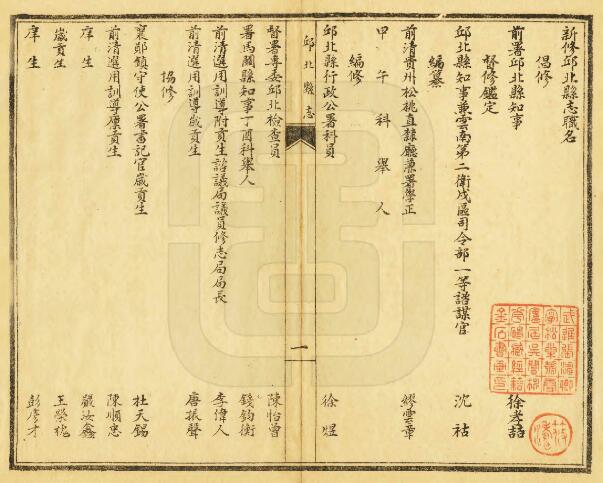 新修邱北縣志職名
倡修
前署邱北縣知事 徐孝喆
督修鑑定
邱北縣知事兼雲南第二衛戍區司令部一等諮謀官 沈祜
編纂
前清貴州松桃直隸廳兼署學正
甲午科舉人 繆雲章
編修
邱北縣行政公署科員 徐煜
邱北縣志
一
督署專委邱北檢查員 陳怡曾
署馬關縣知事丁酉科舉人 錢鈞衡
前清選用訓導附貢生諮議局議員修志局局長 李偉人
前清選用訓導歲貢生 唐振聲
協修
襄鄖鎮守使公署書記官歲貢生 杜天錫
前清選用訓導廩貢生 陳順忠
庠生 嚴汝鑫
歲貢生 王榮
庠生 彭彥才